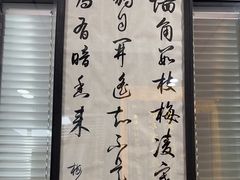 墙角数枝梅凌寒
独自開遥知不是
為有暗香来